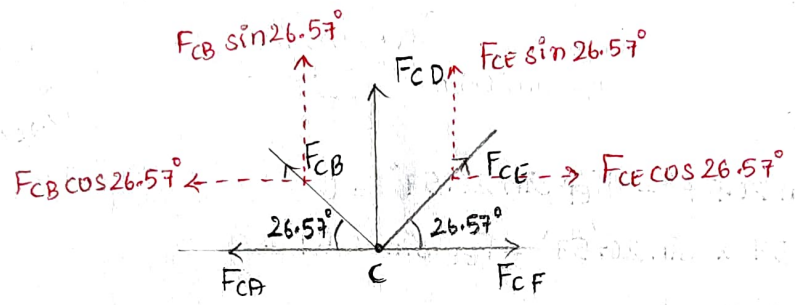 F_CB sin26.57°
F_CD
F_CE sin 26.57°
F_CB
F_CE
F_CB cos26.57°
F_CE cos 26.57°
26.57°
26.57°
F_CA
C
F_CF